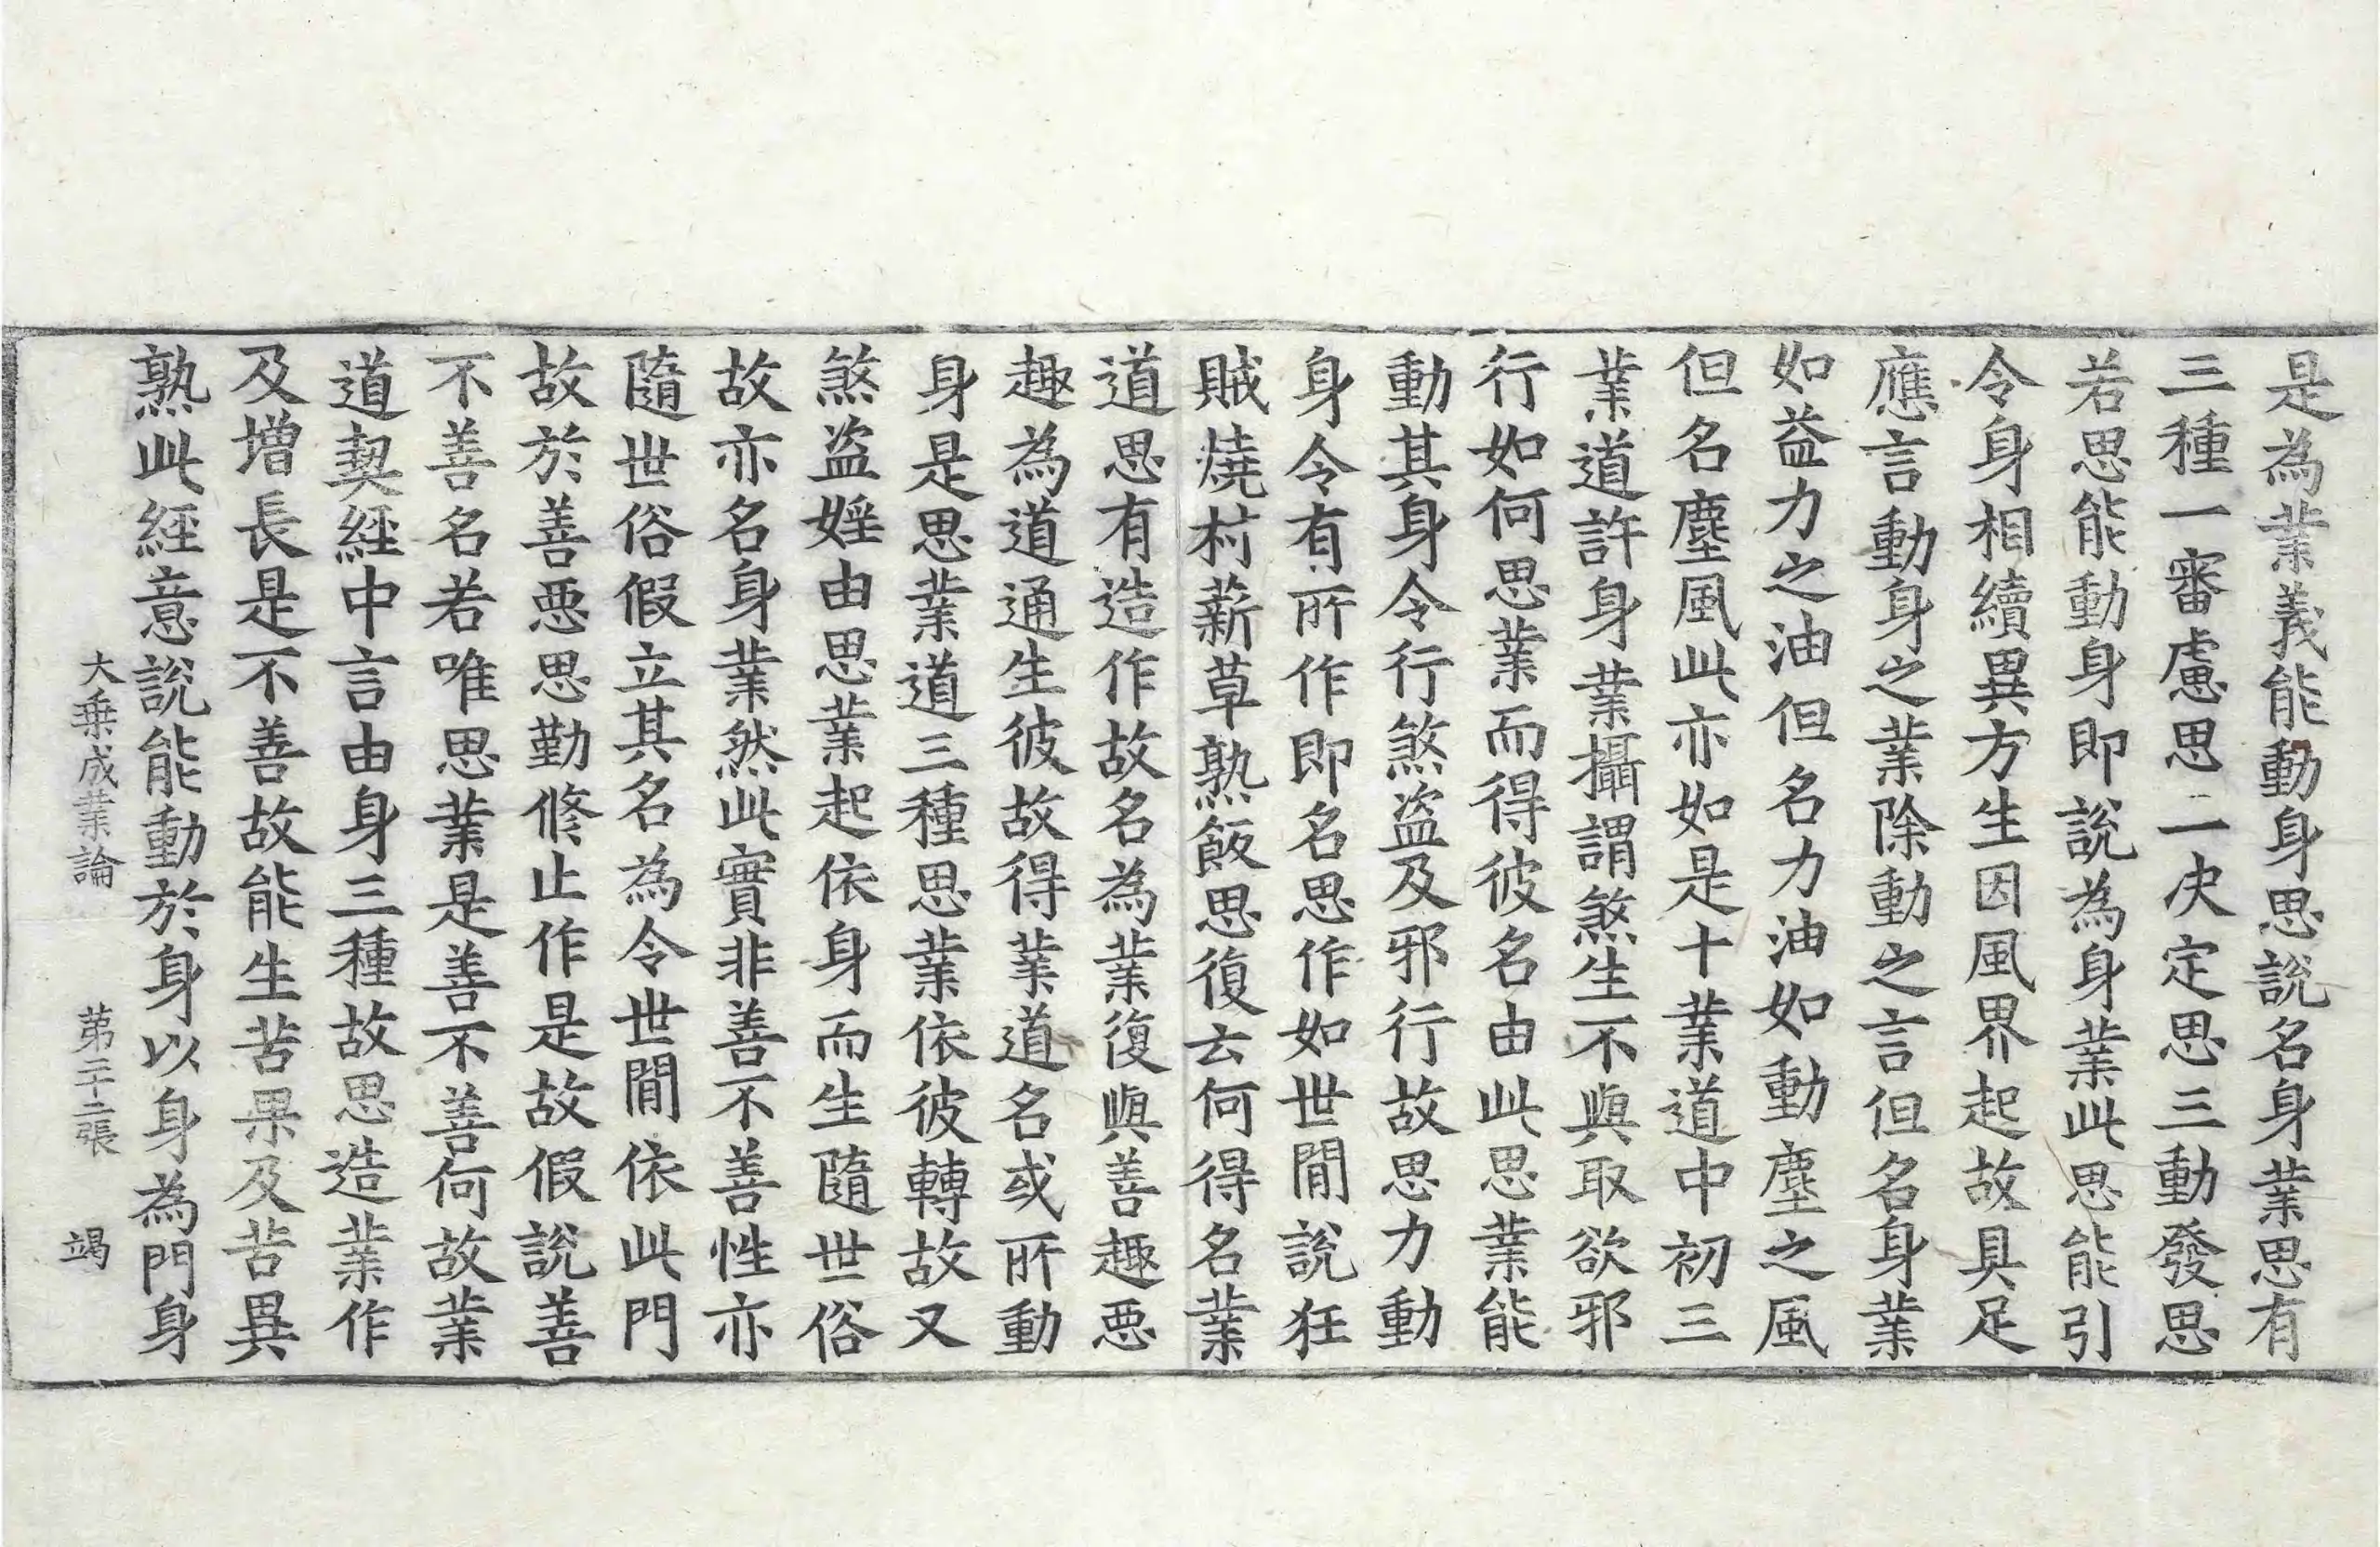 是為業義能動身思說名身業思有
三種一審慮思二決定思三動發思
若思能動身即說為身業此思能引
令身相續異方生因風界起故具足
應言動身之業除動之言但名身業
如益力之油但名力油如動塵之風
但名塵風此亦如是十業道中初三
業道許身業攝謂煞生不與取欲邪
行如何思業而得彼名由此思業能
動其身令行煞盜及邪行故思力動
身令有所作即名思作如世閒說狂
賊燒村薪草熟飯思復云何得名業
道思有造作故名為業復與善趣惡
趣為道通生彼故得業道名或所動
身是思業道三種思業依彼轉故又
煞盜婬由思業起依身而生隨世俗
故亦名身業然此實非善不善性亦
隨世俗假立其名為令世閒依此門
故於善惡思勤修止作是故假說善
不善名若唯思業是善不善何故業
道契經中言由身三種故思造業作
及增長是不善故能生苦果及苦異
熟此經意說能動於身以身為門身
大乘成業論 第二十二張 竭